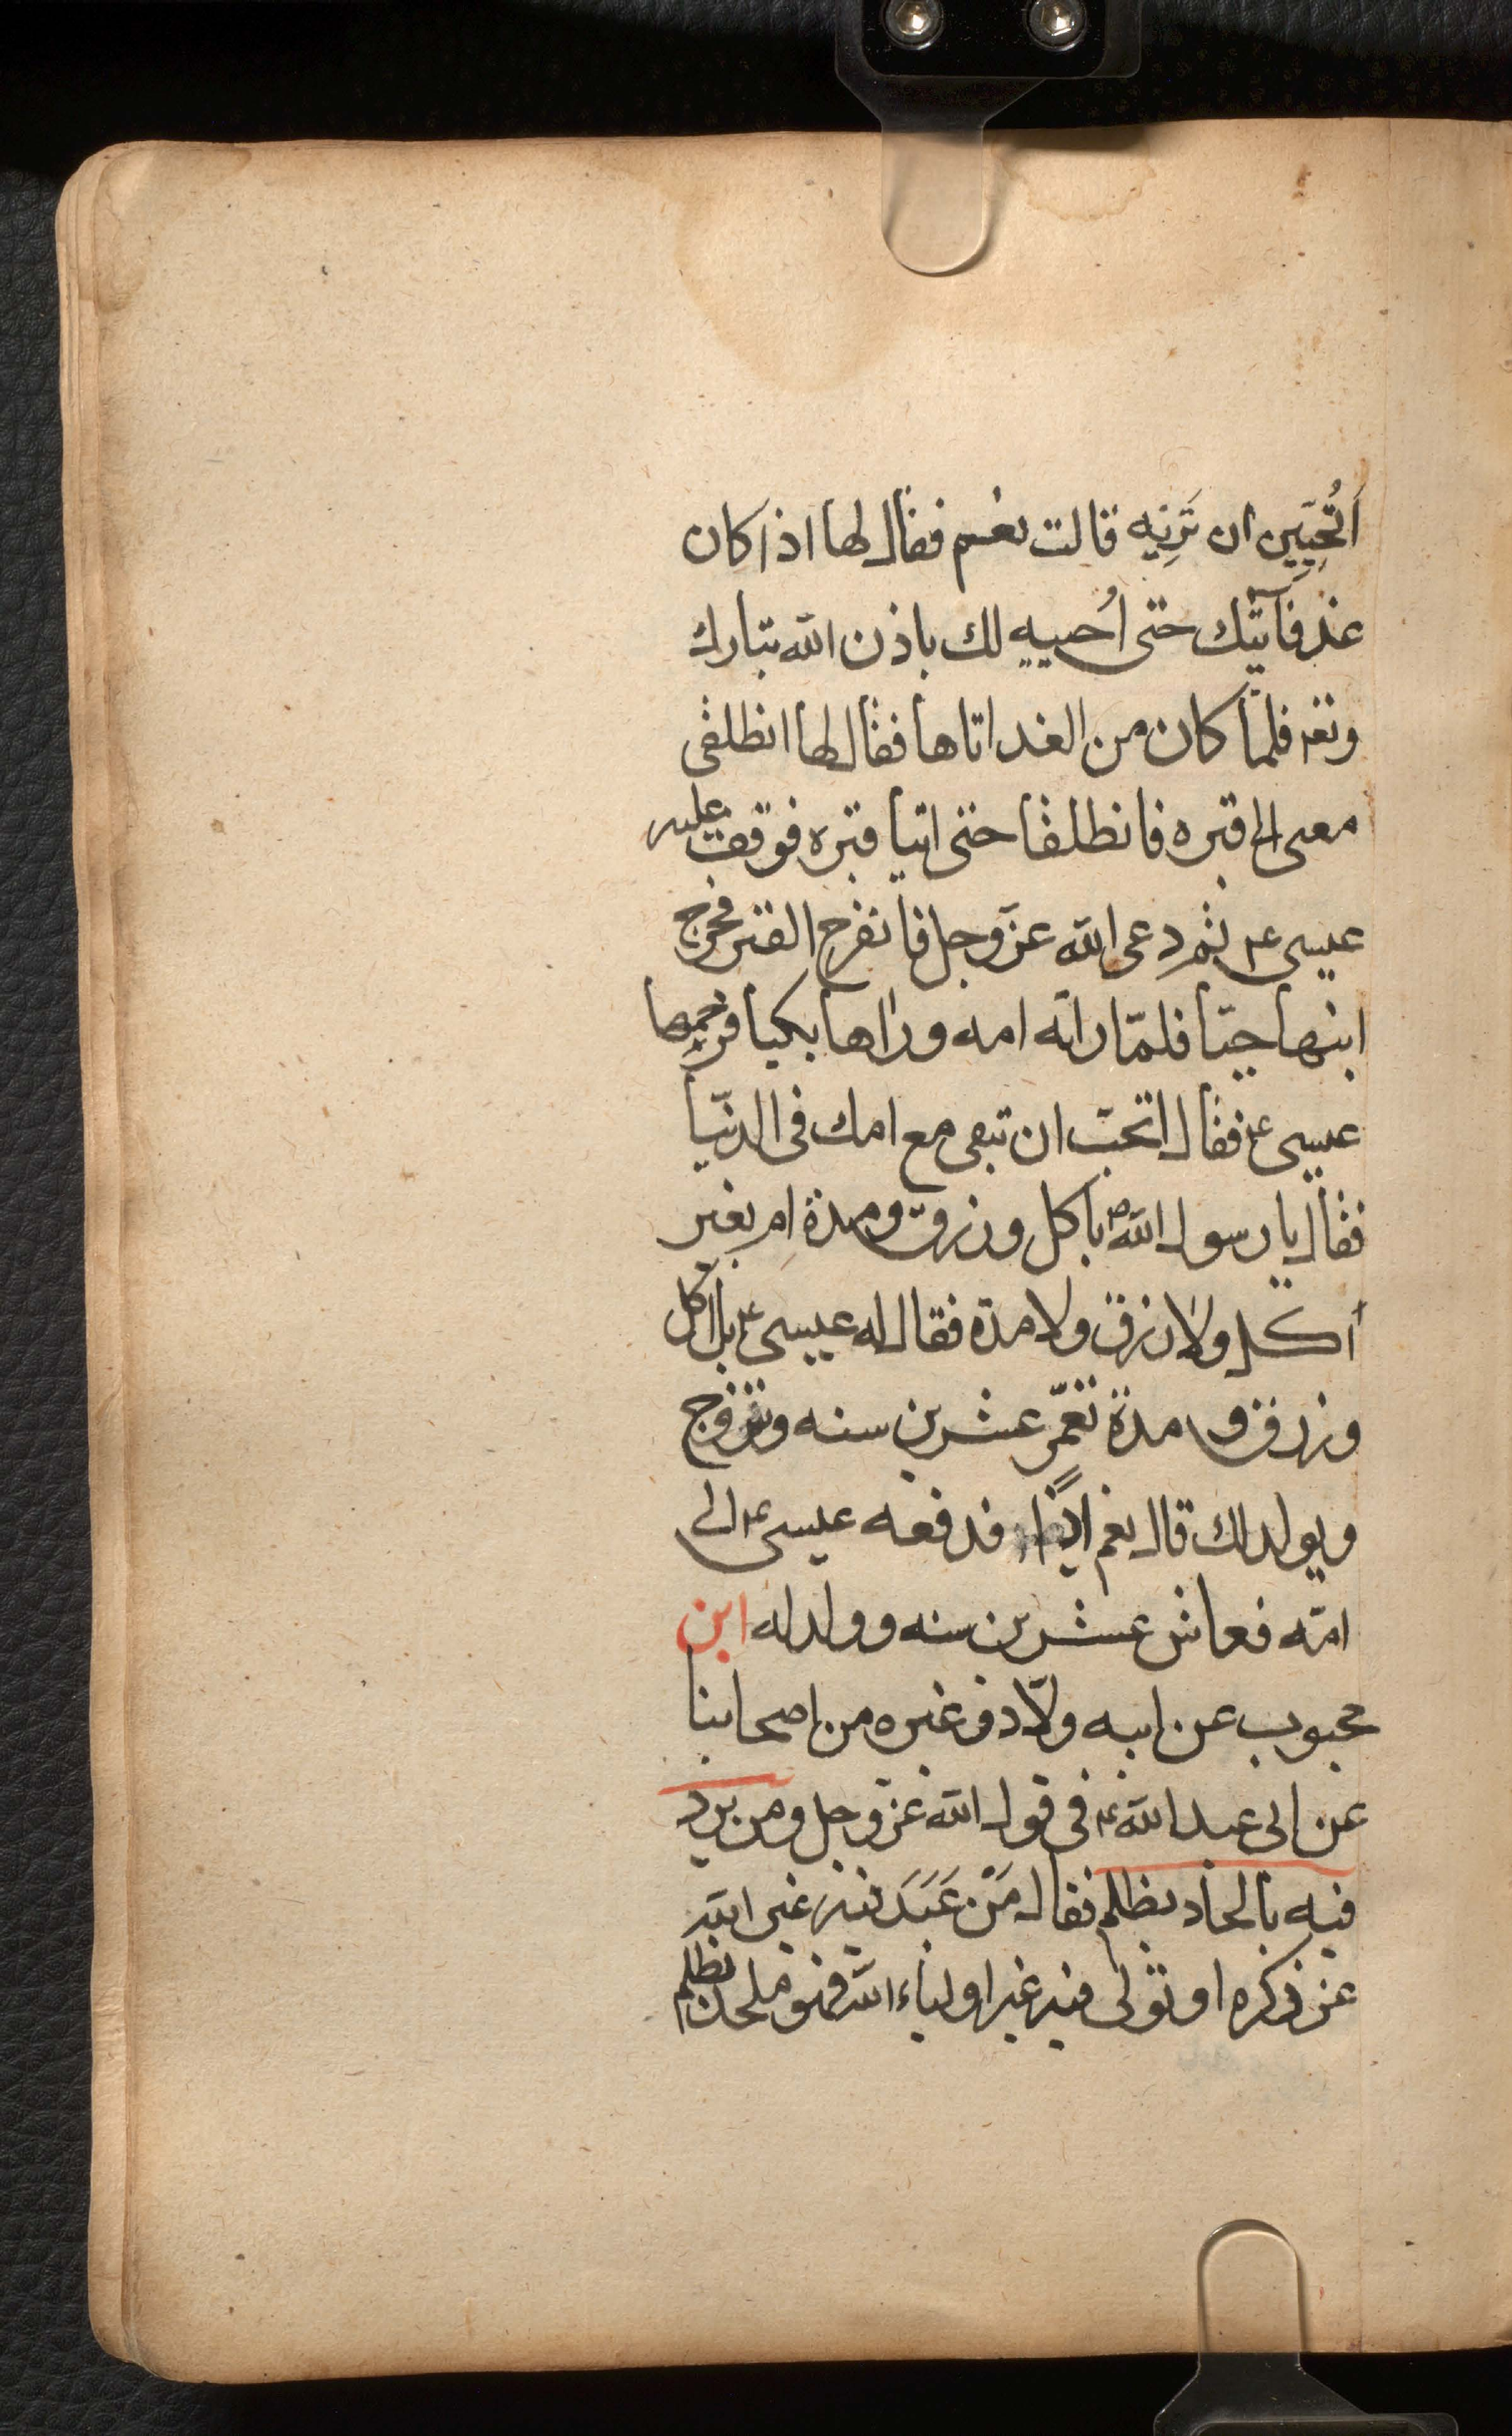 اَتُحِبّين ان تَرينِه قالت نعم فقال لها اذا كان
غد فآتيك حتى اُحييه لك باذن الله تبارك
وتعه فلمّا كان من الغد اتاها فقال لها انطلقى
معى الى قبره فانطلقا حتى اتيا قبره فوقف عليه
عيسى ع ثم دعى الله عزّ وجل فانفرج القبر فخرج
ابنها حيّا فلمّا راته امه وراها بكيا فرحمهما
عيسى ع فقال اتحبّ ان تبقى مع امك فى الدنيا
فقال يا رسول الله ص باكل ورزق ومدة ام بغير
اكل ولا رزق ولا مدة فقال له عيسى ع بل باكل
ورزق و مدة تعمّر عشرين سنه وتزوج
ويولد لك قال نعم اذًا فدفعه عيسى ع الى
امّه فعاش عشرين سنه وولد له ابن
محبوب عن ابيه ولّاد وغيره من اصحابنا
عن ابى عبد الله ع فى قول الله عزّ وجل ومن يرد
فيه بالحاد بظلم فقال مَنْ عَبَدَ فيه غير الله
عز ذكره او تولى فيه غير اولياء الله فهو ملحد بظلم